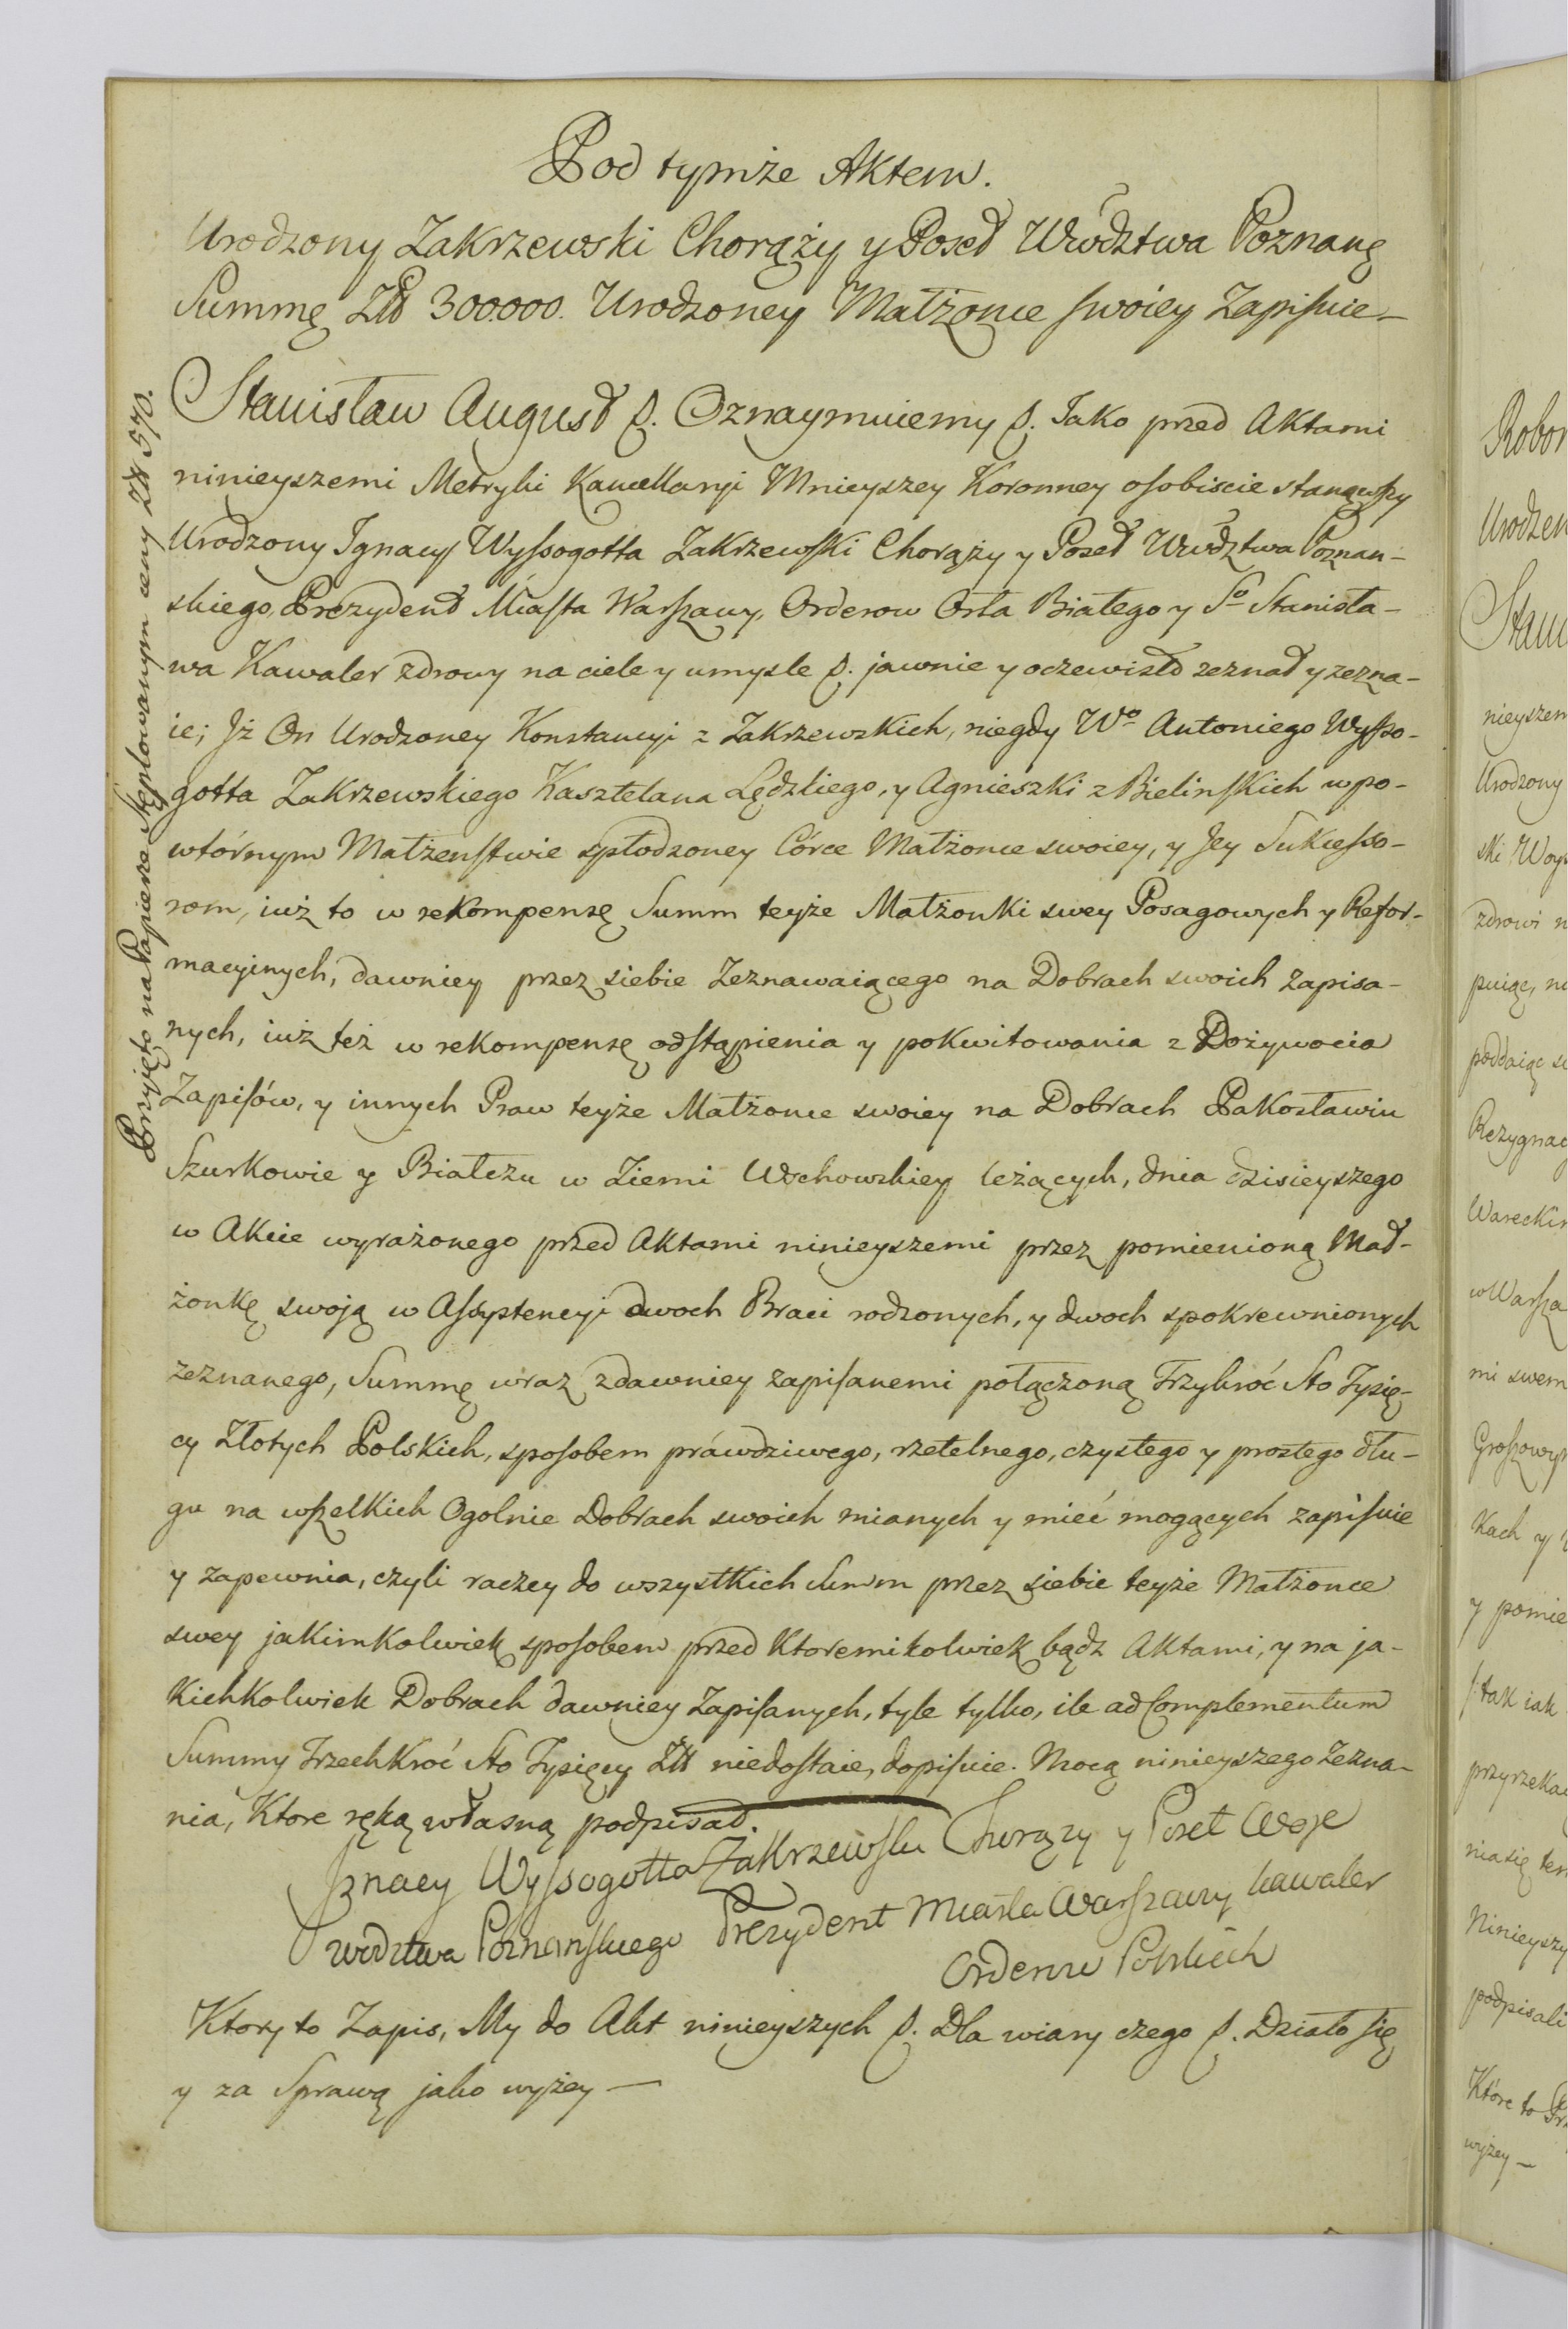 Pod tymże Aktem.
Urodzony Zakrzewski Chorąży y Poseł Wwdztwa Poznang
Summę Złł 300.000. Urodzoney Małżonce swoiey Zapisuie –
Stanisław August p. Oznaymuiemy p. Iako przed Aktami
ninieyszemi Metryki Kancellaryi Mnieyszey Koronney osobiscie stanąwszy
Urodzony Ignacy Wyssogotta Zakrzewski Chorąży y Poseł Wwdztwa Poznan-
skiego, Prezydent Miasta Warszawy, Orderow Orła Białego y So Stanisła-
wa Kawaler zdrowy na ciele y umysle p. jawnie y oczewisto zeznał y zezna-
ie; Iż On Urodzoney Konstancyi z Zakrzewskich, niegdy Wo Antoniego Wysso-
gotta Zakrzewskiego Kasztelana Lędzkiego, y Agnieszki z Bielinskich w po-
wtórnym Małżenstwie spłodzoney Córce Małżonce swoiey, y Iey Sukcesso-
rom, iuż to w rekompensę Summ teyże Małżonki swey Posagowych y Refor-
macyinych, dawniey przez siebie Zeznawaiącego na Dobrach swoich zapisa-
nych, iuż też w rekompensę odstąpienia y pokwitowania z Dożywocia
Zapisów, y innych Praw teyże Małżonce swoiey na Dobrach Pakosławiu
Szurkowie y Białczu w Ziemi Wschowskiey leżących, dnia dzisieyszego
w Akcie wyrażonego przed Aktami ninieyszemi przez pomienioną Mał-
żonkę swoją w Assystencyi dwoch Braci rodzonych, y dwoch spokrewnionych
zeznanego, Summę wraz z dawniey zapisanemi połączoną Trzykroć Sto Tysię-
cy Złotych Polskich, sposobem práwdziwego, rzetelnego, czystego y prostego dłu-
gu na wszelkich Ogolnie Dobrach swoich mianych y mieć mogących zapisuie
y zapewnia, czyli raczey do wszystkich Summ przez siebie teyże Małżonce
swey jakimkolwiek sposobem przed Ktoremikolwiek bądz Aktami, y na ja-
kichkolwiek Dobrach dawniey Zapisanych, tyle tylko, ile ad Complementum
Summy Trzechkroć Sto Tysięcy Złł niedostaie, dopisuie. Mocą ninieyszego Zezna-
nia, Ktore ręką własną podpisał.
Ignacy Wyssogotta Zakrzewski Chorązy y Poseł Woje
wodztwa Poznanskiego Prezydent Miasta Warszawy kawaler
Orderow Polskich
Ktory to Zapis, My do Akt ninieyszych p. Dla wiary czego p. Działo się
y za Sprawą jako wyżey —
Przyięto na Papierze Stęplowanym ceny Złł 570.
Robor
Urodzen
Stani
nieyszem
Urodzony
ski Woys
zdrowi n
puiąc, na
poddaiąc si
Rezygnac
Wareckim
w Warsza
mi swem
Groszowym
kach y
y pomie
tak iak
przyrzeka
nia się ten
Ninieyszy
podpisali
Które to
wyżey –